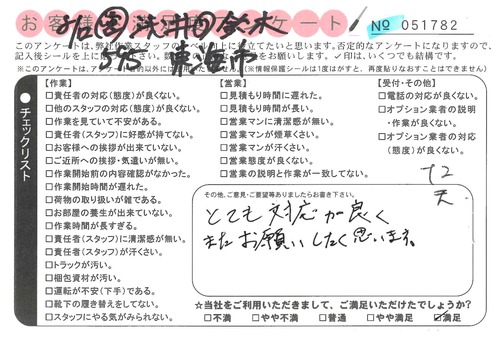 お客様 アンケート № 051782
このアンケートは、弊社作業スタッフのレベル向上に役立てたいと思います。否定的なアンケートになりますので、
※このアンケートは、アンケート目的以外には使用いたしません。(※情報保護シールは1度はがすと、再度貼りなおすことはできません)
チェックリスト
【作業】
□責任者の対応(態度)が良くない。
□他のスタッフの対応(態度)が良くない。
□作業を見ていて不安がある。
□責任者(スタッフ)に好感が持てない。
□お客様への挨拶が出来ていない。
□ご近所への挨拶・気遣いが無い。
□作業開始前の内容確認がなかった。
□作業開始時間が遅れた。
□荷物の取り扱いが雑である。
□お部屋の養生が出来ていない。
□作業時間が長すぎる。
□責任者(スタッフ)に清潔感が無い。
□責任者(スタッフ)が汗くさい。
□トラックが汚い。
□梱包資材が汚い。
□運転が不安(下手)である。
□靴下の履き替えをしてない。
□スタッフにやる気がみられない。
【営業】
□見積もり時間に遅れた。
□見積もり時間が長い。
□営業マンに清潔感が無い。
□営業マンが煙草くさい。
□営業マンが汗くさい。
□営業態度が良くない。
□営業の説明と作業が一致してない。
【受付・その他】
□電話の対応が良くない。
□オプション業者の説明
・作業が良くない。
□オプション業者の対応
(態度)が良くない。
その他、ご意見・ご要望等ありましたらお書き下さい。
とても対応が良く
またお願いしたく思います。
☆当社をご利用いただきまして、ご満足いただけたでしょうか?
□不満 □やや不満 □普通 □やや満足 ☑満足